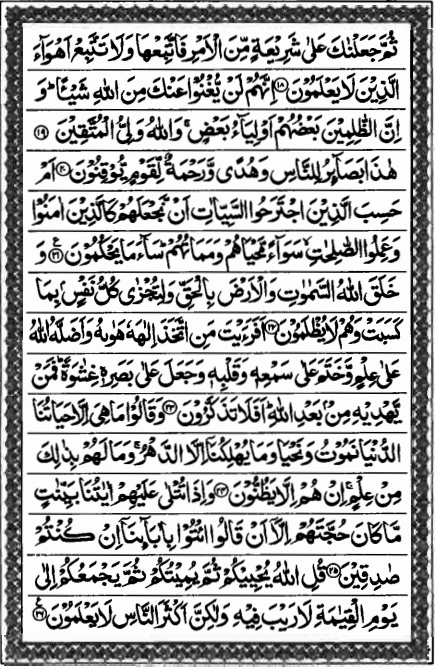 ثُمَّ جَعَلْنٰكَ عَلٰى شَرِيْعَةٍ مِّنَ الْاَمْرِ فَاتَّبِعْهَا وَلَا تَتَّبِعْ اَهْوَآءَ
الَّذِيْنَ لَا يَعْلَمُوْنَ ۝۱۸ اِنَّهُمْ لَنْ يُّغْنُوْا عَنْكَ مِنَ اللّٰهِ شَيْـًٔا ؕ وَ
اِنَّ الظّٰلِمِيْنَ بَعْضُهُمْ اَوْلِيَآءُ بَعْضٍ ۚ وَاللّٰهُ وَلِىُّ الْمُتَّقِيْنَ ۝۱۹
هٰذَا بَصَآئِرُ لِلنَّاسِ وَهُدًى وَّرَحْمَةٌ لِّقَوْمٍ يُّوْقِنُوْنَ ۝۲۰ اَمْ
حَسِبَ الَّذِيْنَ اجْتَرَحُوا السَّيِّاٰتِ اَنْ نَّجْعَلَهُمْ كَالَّذِيْنَ اٰمَنُوْا
وَعَمِلُوا الصّٰلِحٰتِ ۙ سَوَآءً مَّحْيَاهُمْ وَمَمَاتُهُمْ ؕ سَآءَ مَا يَحْكُمُوْنَ ۝۲۱ ع وَ
خَلَقَ اللّٰهُ السَّمٰوٰتِ وَالْاَرْضَ بِالْحَقِّ وَلِتُجْزٰى كُلُّ نَفْسٍۭ بِمَا
كَسَبَتْ وَهُمْ لَا يُظْلَمُوْنَ ۝۲۲ اَفَرَءَيْتَ مَنِ اتَّخَذَ اِلٰهَهٗ هَوٰىهُ وَاَضَلَّهُ اللّٰهُ
عَلٰى عِلْمٍ وَّخَتَمَ عَلٰى سَمْعِهٖ وَقَلْبِهٖ وَجَعَلَ عَلٰى بَصَرِهٖ غِشٰوَةً ؕ فَمَنْ
يَّهْدِيْهِ مِنْۢ بَعْدِ اللّٰهِ ؕ اَفَلَا تَذَكَّرُوْنَ ۝۲۳ وَقَالُوْا مَا هِىَ اِلَّا حَيَاتُنَا
الدُّنْيَا نَمُوْتُ وَنَحْيَا وَمَا يُهْلِكُنَاۤ اِلَّا الدَّهْرُ ۚ وَمَا لَهُمْ بِذٰلِكَ
مِنْ عِلْمٍ ۚ اِنْ هُمْ اِلَّا يَظُنُّوْنَ ۝۲۴ وَاِذَا تُتْلٰى عَلَيْهِمْ اٰيٰتُنَا بَيِّنٰتٍ
مَّا كَانَ حُجَّتَهُمْ اِلَّاۤ اَنْ قَالُوا ائْتُوْا بِاٰبَآئِنَاۤ اِنْ كُنْتُمْ
صٰدِقِيْنَ ۝۲۵ قُلِ اللّٰهُ يُحْيِيْكُمْ ثُمَّ يُمِيْتُكُمْ ثُمَّ يَجْمَعُكُمْ اِلٰى
يَوْمِ الْقِيٰمَةِ لَا رَيْبَ فِيْهِ وَلٰكِنَّ اَكْثَرَ النَّاسِ لَا يَعْلَمُوْنَ ۝۲۶ ع